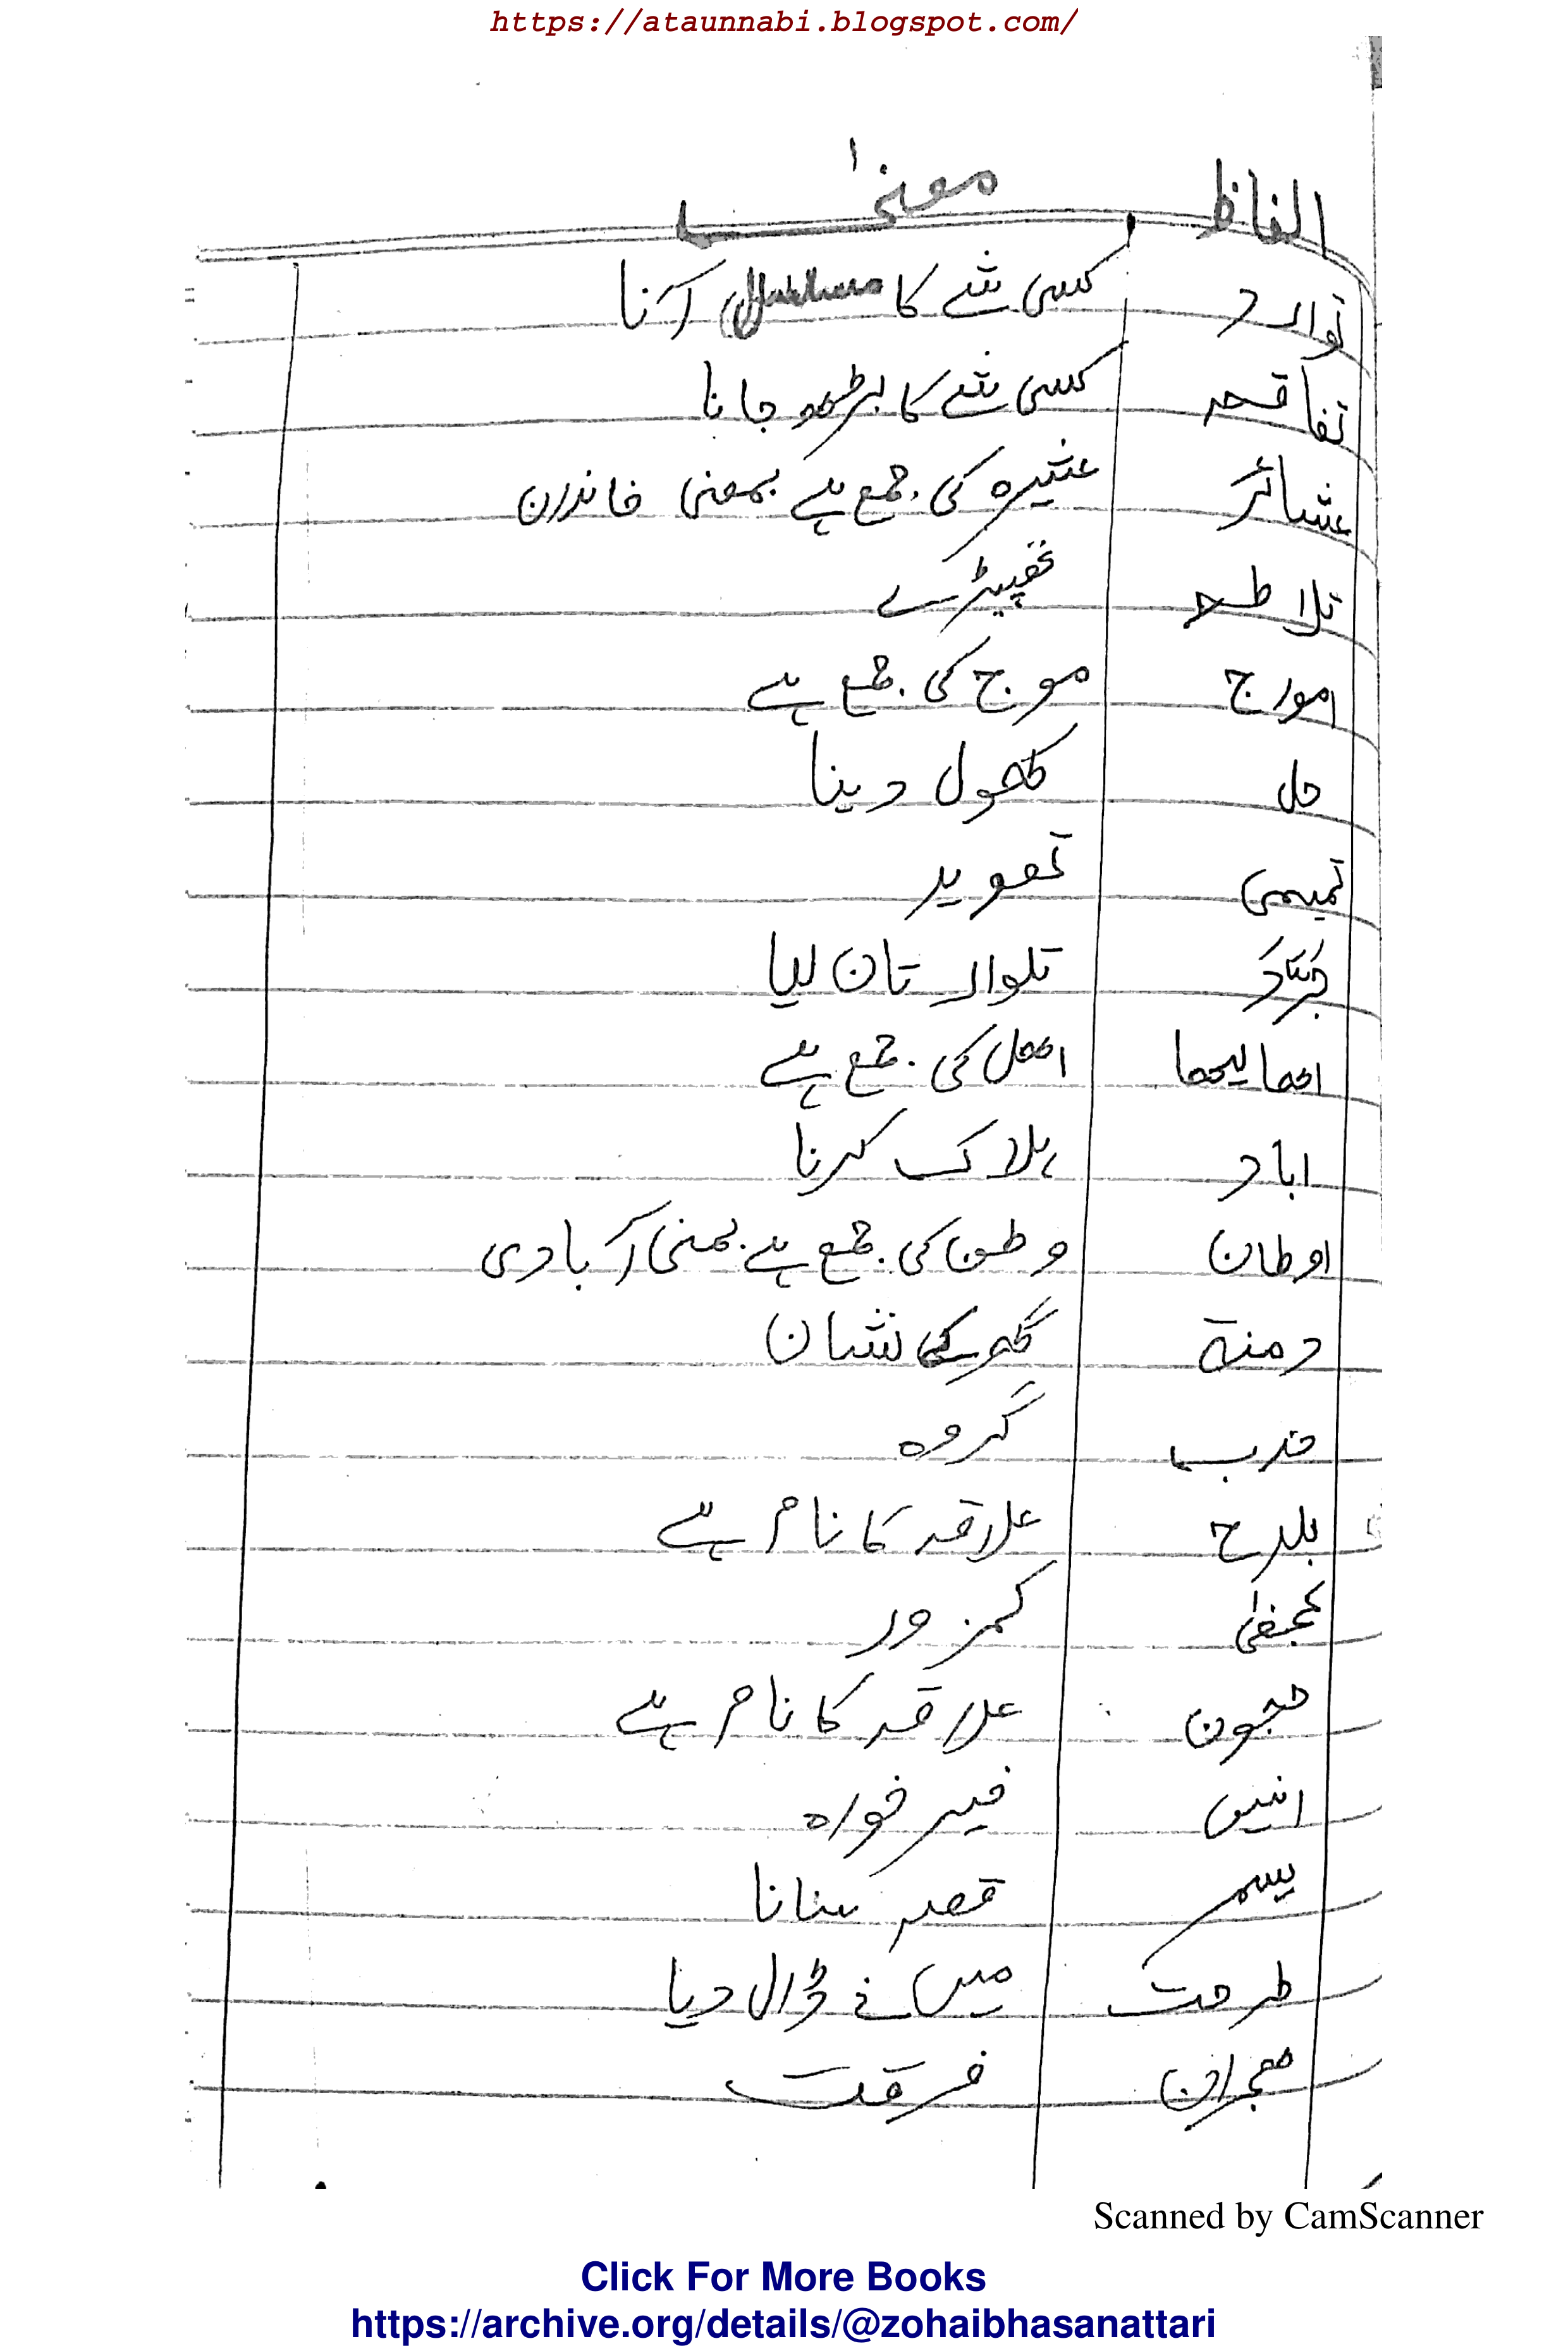 https://ataunnabi.blogspot.com/
الفاظ معنیٰ
توارد کسی شے کا مسلسل آنا
تفاقم کسی شے کا بڑھ جانا
عشائر عشیرہ کی جمع ہے بمعنی خاندان
تلاطم تھپیڑے
امواج موج کی جمع ہے
حل کھول دینا
تمیمی تعویذ
جَرَّدَ تلوار تان لیا
کی جمع ہے
اباد ہلاک کرنا
اوطان وطن کی جمع ہے بمعنی آبادی
دمنة گھر کی نشان
حزب گروہ
بلدح علاقہ کا نام ہے
کمزور
حجون علاقہ کا نام ہے
انیس خیر خواہ
یسمر قصہ سنانا
طرحت میں نے ڈال دیا
ھجران فرقت
Scanned by CamScanner
Click For More Books
https://archive.org/details/@zohaibhasanattari